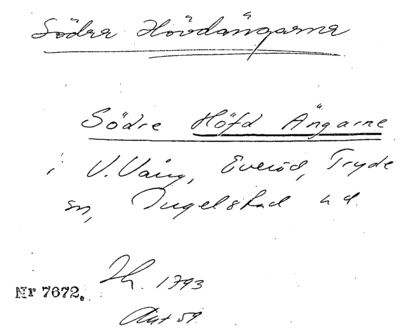 Södra Hövdängarna
Södre Höfd Ängarne
i V. Vång, Everöd, Tryde
sn, Ingelstad hd.
Nr 7672. Lh. 1793
Akt 59